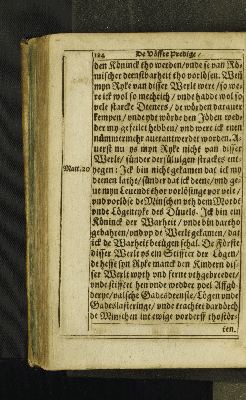 124 De Vöffte Predige /
den Köninck tho werden / vnde se van Rö-
mischer deenstbarheit tho vorlösen. Weñ
myn Ryke van disser Werlt were / so we-
re ick wol so mechtich / vnde hadde wol so
vele starcke Deeners / de würden darauer
kempen / vnde ydt wörde den Jöden wed-
der my gefeilet hebben / vnd were ick en en
nümmermehr auerantwerdet worden. A-
uerst nu ys myn Ryke nicht van disser
Werlt / sünder dersüluigen strackes ent-
Matt. 20 yegen: Ick bin nicht gekamen dat ick my
deenen lathe / sünder dat ick deene / vnd ge-
ue myn Leuendt thor vorlösinge vor vele /
vnd vorlöse de Minschen vth dem Mordt
vnde Lögenryke des Düuels. Ick bin ein
Köninck der Warheit / vnde bin dartho
gebahren / vnd vp de Werlt gekamen / dat
ick de Warheit betügen schal. De Förste
disser Werlt ys ein Stiffter der Lögen /
de hefft syn Ryke manck den Kindern dis-
ser Werlt wyth vnd ferne vthgebredet /
vnde stifftet hen vnde wedder veel Affgö-
derye / valsche Gadesdeenste / Lögen vnde
Gadeslasteringe / vnde trachtet dardörch
de Minschen int ewige vorderff thostör-
ten.